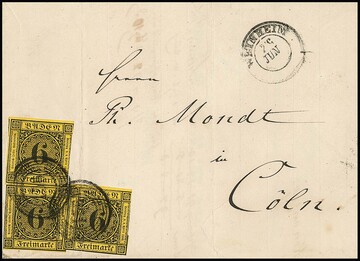 WEINHEIM
26
JUN
Herrn
Ph. Mondt
in
Cöln.
BADEN
6
Freimarke
BADEN
6
Freimarke
BADEN
6
Freimarke